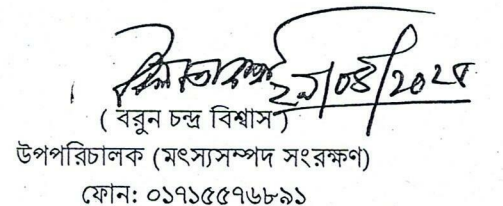 ২৯/০৪/২০২৫
( বরুন চন্দ্র বিশ্বাস )
উপপরিচালক (মৎস্যসম্পদ সংরক্ষণ)
ফোন: ০১৭১৫৫৭৬৮৯১